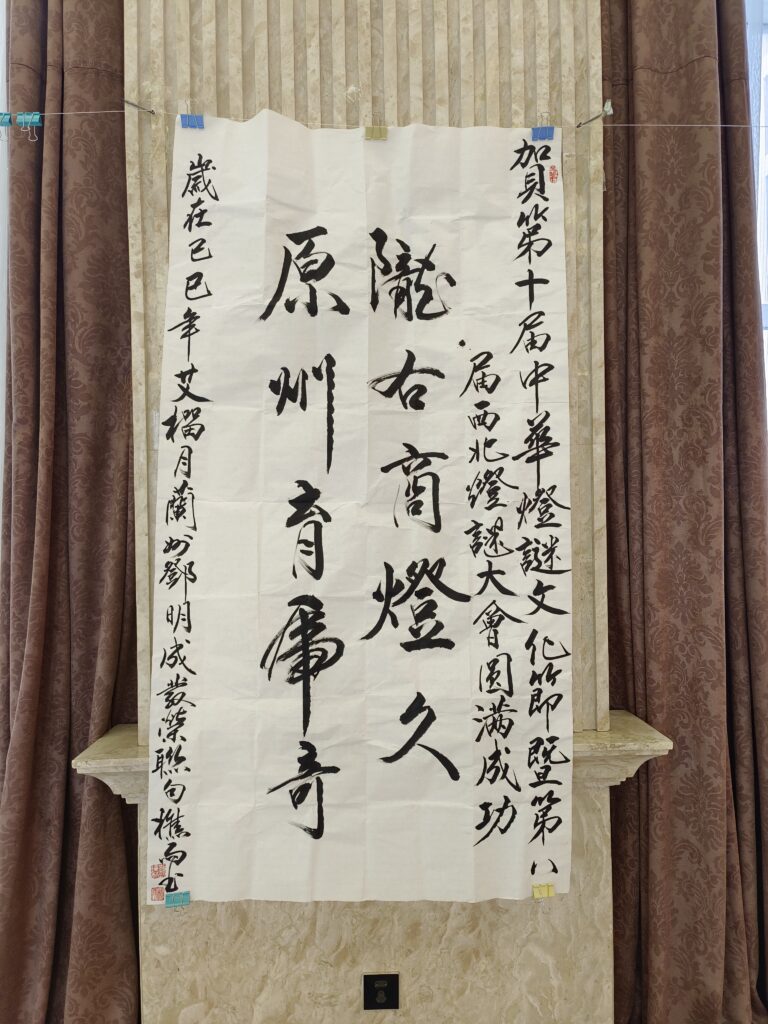 賀第十届中華燈謎文化節暨第八
届西北燈謎大會圓滿成功
隴右商燈久
原州育虎奇
歲在己巳年艾榴月蘭州鄧明成發榮聯句樵雨书